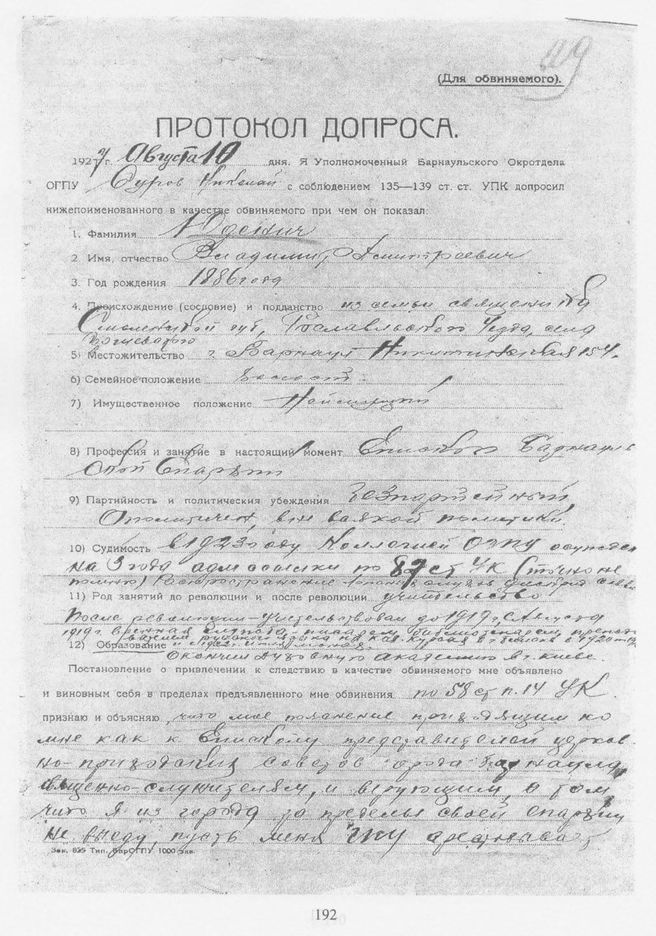 29
(Для обвиняемого).
ПРОТОКОЛ ДОПРОСА.
1927 г. Августа 10 дня. Я Уполномоченный Барнаульского Окротдела
ОГПУ Суров Николай с соблюдением 135—139 ст. ст. УПК допросил
нижепоименованного в качестве обвиняемого при чем он показал:
1. Фамилия Юденич
2. Имя, отчество Владимир Дмитриевич
3. Год рождения 1886 года
4. Происхождение (сословие) и подданство из семьи священника
Смоленской губ, Рославльского уезда, села
5) Местожительство г. Барнаул Никитинская 154.
6) Семейное положение холост.
7) Имущественное положение Неимущий
8) Профессия и занятие в настоящий момент Епископ Барнауль
ской Епархии
9) Партийность и политические убеждения Безпартейный
Аполитичен, вне всякой политики.
10) Судимость в 1923 году Коллегией ОГПУ осужден
на 3 года адмссылки по 87 ст УК (точно не
помню)
11) Род занятий до революции и после революции учительство
После революции учительствовал до 1919 г. Августа
1919 г.
12) Образование
Окончил духовную академию в г. Киеве.
Постановление о привлечении к следствию в качестве обвиняемого мне объявлено
и виновным себя в пределах предъявленного мне обвинения по 58 ст п. 14 УК.
признаю и объясняю, что мое пояснение приходящим ко
мне как к Епископу представителей церков
но-приходских советов города Барнаула,
священно-служителям, и верующим, о том
что я из города за пределы своей епархии
не выеду, пусть меня ГПУ арестовывает
Зак. 835 Тип. БарОГПУ 1000 экз.
192